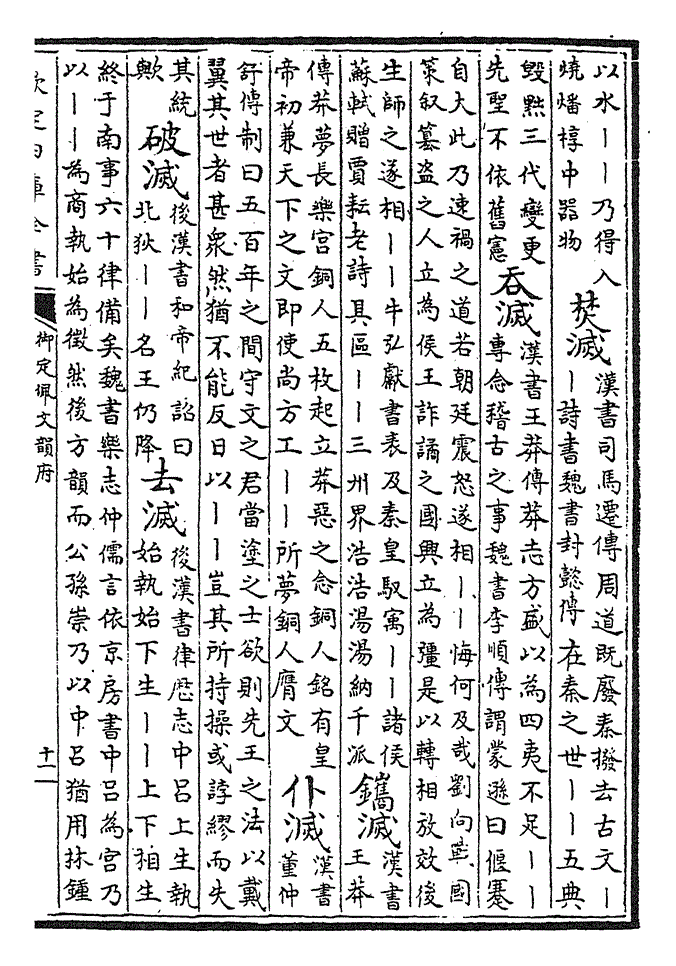 以水丨丨乃得入
燒燔椁中器物
焚滅
漢書司馬遷傳周道既廢秦撥去古文丨
丨詩書魏書封懿傳在秦之世丨丨五典
毁黜三代變更
先聖不依舊憲
吞滅
漢書王莽傳莽志方盛以為四夷不足丨丨
專念稽古之事魏書李順傳謂蒙遜曰偃蹇
自大此乃速禍之道若朝廷震怒遂相丨丨悔何及哉劉向戰國
策叙篡盗之人立為侯王詐譎之國興立為彊是以轉相放效後
生師之遂相丨丨牛弘獻書表及秦皇馭寓丨丨諸侯
蘇軾贈賈耘老詩具區丨丨三州界浩浩湯湯納千派
鐫滅
漢書
王莽
傳莽夢長樂宫銅人五枚起立莽惡之念銅人銘有皇
帝初兼天下之文即使尚方工丨丨所夢銅人膺文
仆滅
漢書
董仲
舒傳制曰五百年之間守文之君當塗之士欲則先王之法以戴
翼其世者甚衆然猶不能反日以丨丨豈其所持操或誖繆而失
其統
歟
破滅
後漢書和帝紀詔曰
北狄丨丨名王仍降
去滅
後漢書律歷志中吕上生執
始執始下生丨丨上下相生
終于南事六十律備矣魏書樂志仲儒言依京房書中吕為宫乃
以丨丨為商執始為徵然後方韻而公孫崇乃以中吕猶用林鍾
欽定四庫全書
御定佩文韻府
十二